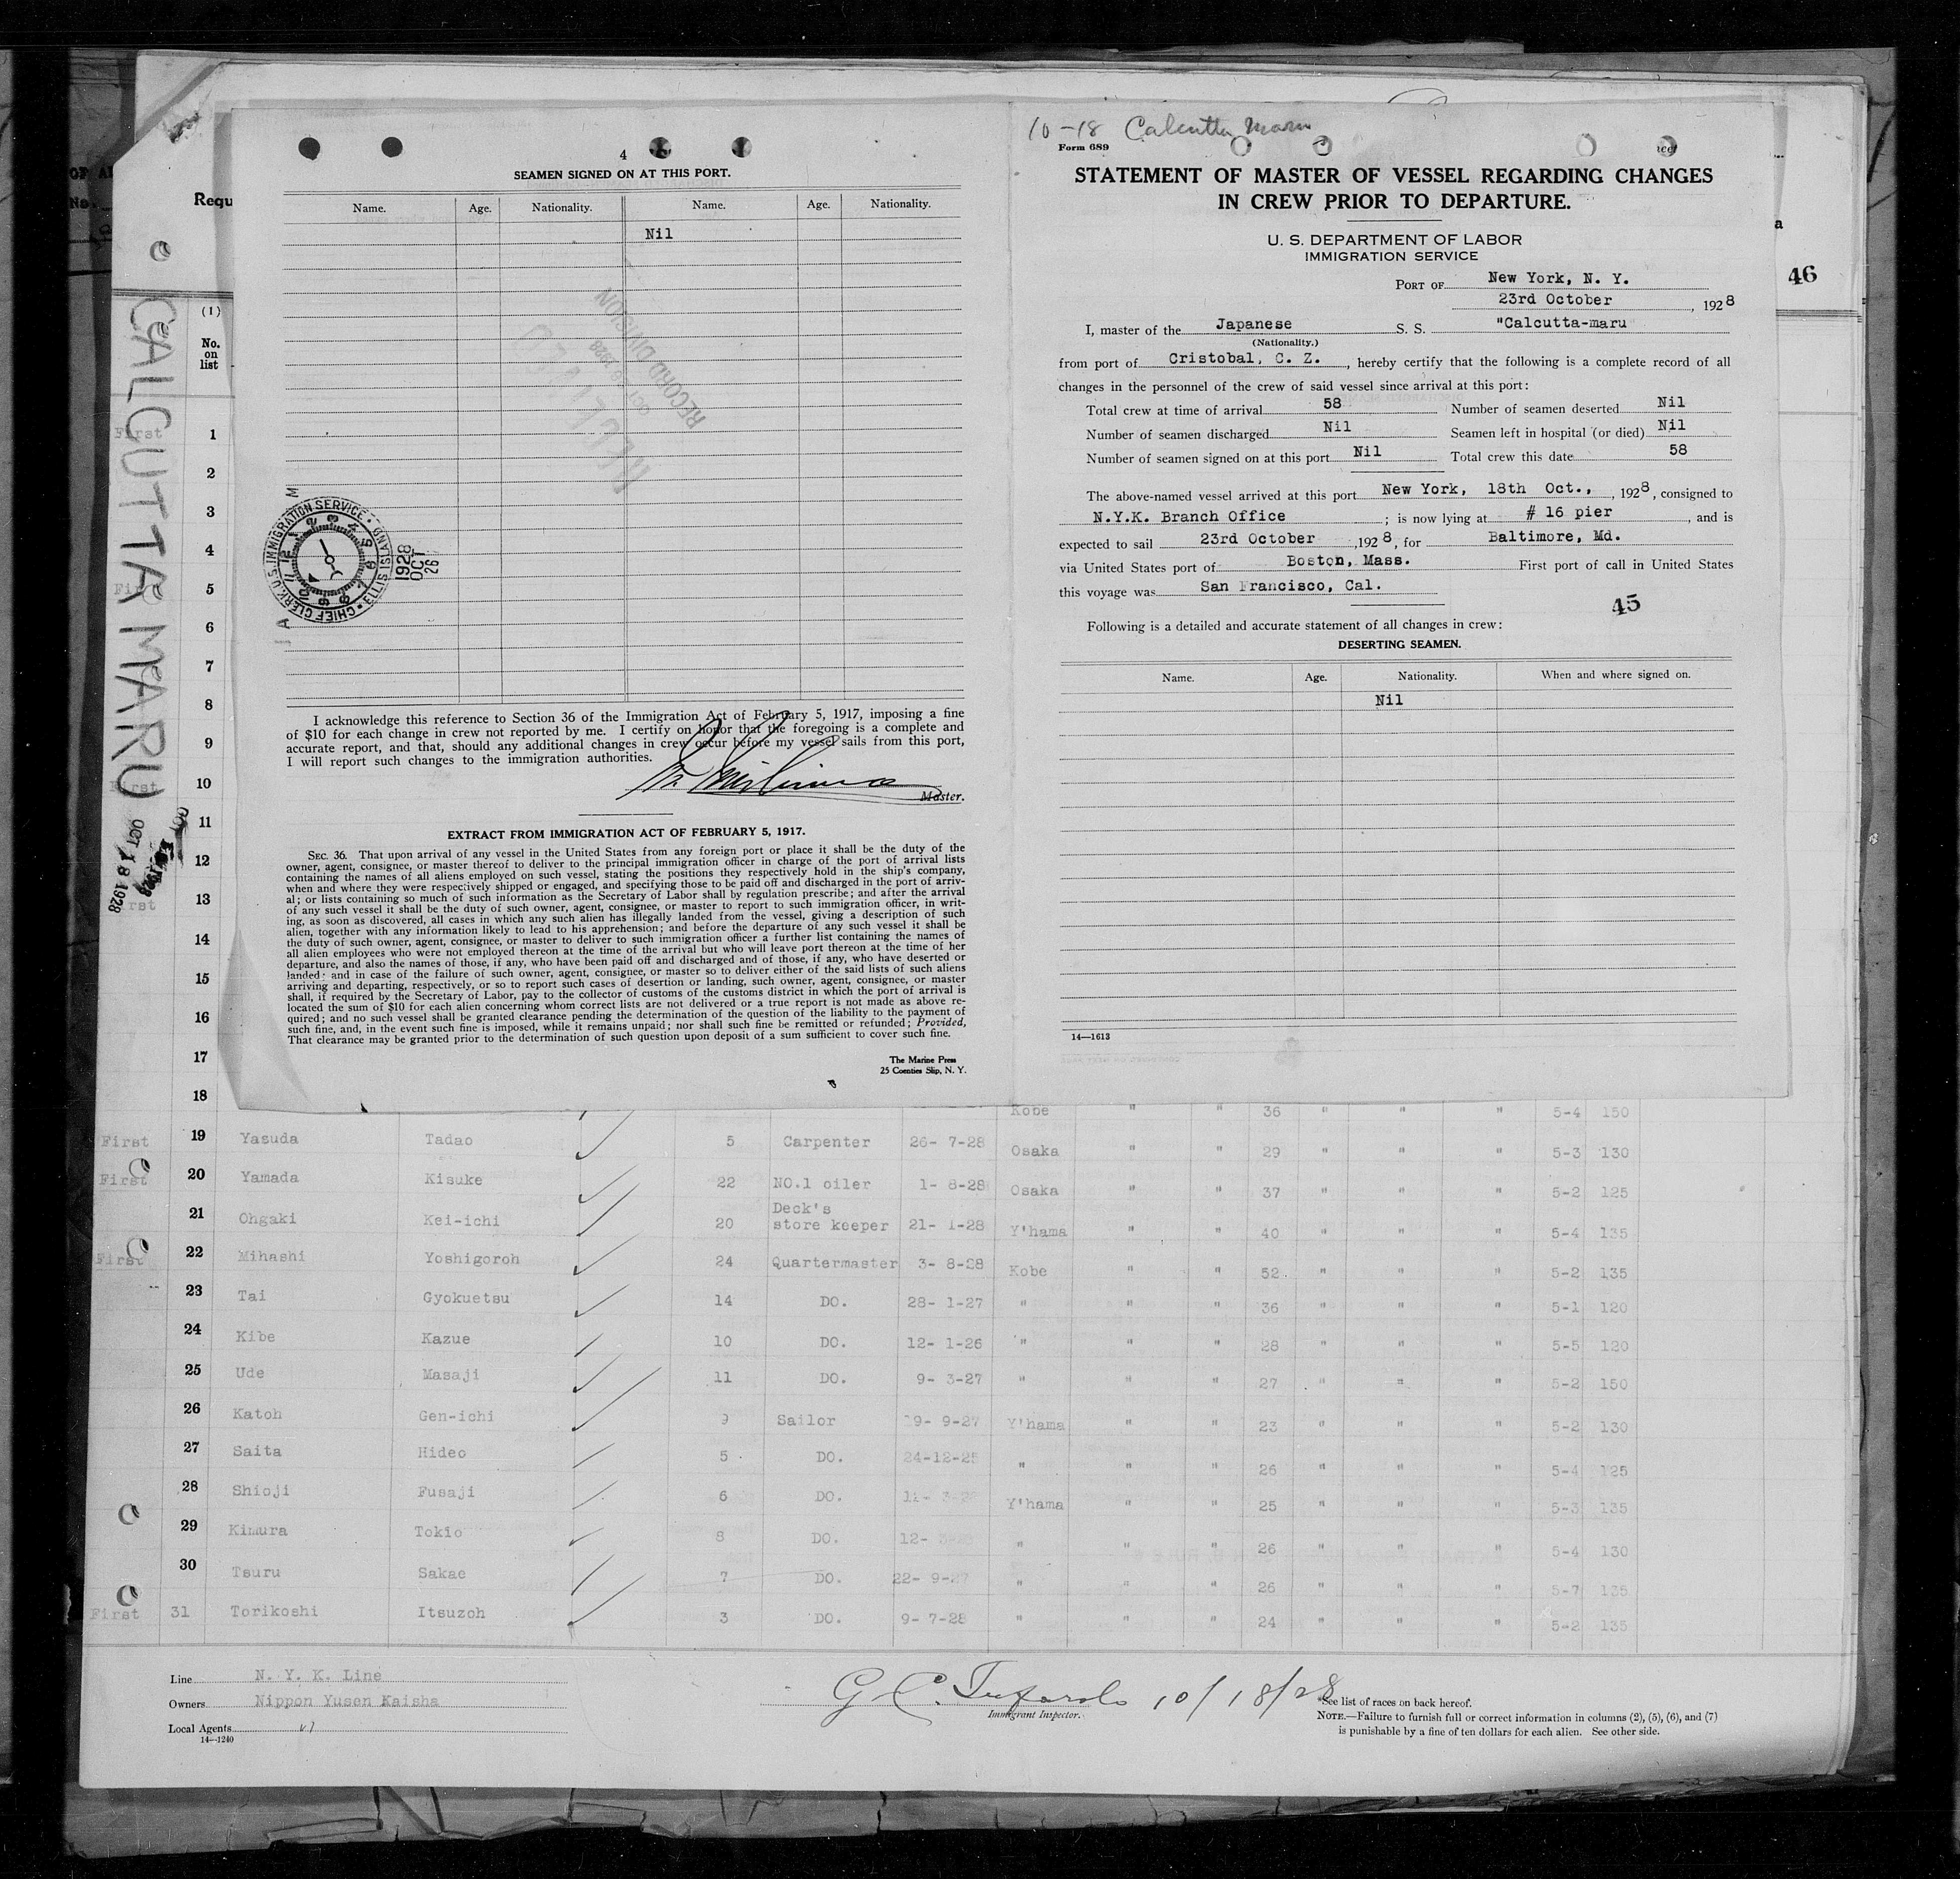 4
SEAMEN SIGNED ON AT THIS PORT.
Name. Age. Nationality. Name. Age. Nationality.
Nil
RECORD DIVISION
U.S. IMMIGRATION SERVICE
CHIEF CLERK
ELLIS ISLAND
1928
OCT
26
I acknowledge this reference to Section 36 of the Immigration Act of February 5, 1917, imposing a fine
of $10 for each change in crew not reported by me. I certify on honor that the foregoing is a complete and
accurate report, and that, should any additional changes in crew occur before my vessel sails from this port,
I will report such changes to the immigration authorities.
Master.
EXTRACT FROM IMMIGRATION ACT OF FEBRUARY 5, 1917.
SEC. 36. That upon arrival of any vessel in the United States from any foreign port or place it shall be the duty of the
owner, agent, consignee, or master thereof to deliver to the principal immigration officer in charge of the port of arrival lists
containing the names of all aliens employed on such vessel, stating the positions they respectively hold in the ship's company,
when and where they were respectively shipped or engaged, and specifying those to be paid off and discharged in the port of arriv-
al; or lists containing so much of such information as the Secretary of Labor shall by regulation prescribe; and after the arrival
of any such vessel it shall be the duty of such owner, agent, consignee, or master to report to such immigration officer, in writ-
ing, as soon as discovered, all cases in which any such alien has illegally landed from the vessel, giving a description of such
alien, together with any information likely to lead to his apprehension; and before the departure of any such vessel it shall be
the duty of such owner, agent, consignee, or master to deliver to such immigration officer a further list containing the names of
all alien employees who were not employed thereon at the time of the arrival but who will leave port thereon at the time of her
departure, and also the names of those, if any, who have been paid off and discharged and of those, if any, who have deserted or
landed; and in case of the failure of such owner, agent, consignee, or master so to deliver either of the said lists of such aliens
arriving and departing, respectively, or so to report such cases of desertion or landing, such owner, agent, consignee, or master
shall, if required by the Secretary of Labor, pay to the collector of customs of the customs district in which the port of arrival is
located the sum of $10 for each alien concerning whom correct lists are not delivered or a true report is not made as above re-
quired; and no such vessel shall be granted clearance pending the determination of the question of the liability to the payment of
such fine, and, in the event such fine is imposed, while it remains unpaid; nor shall such fine be remitted or refunded; Provided,
That clearance may be granted prior to the determination of such question upon deposit of a sum sufficient to cover such fine.
The Marine Press
25 Coenties Slip, N. Y.
10-18 Calcutta Maru
Form 689
STATEMENT OF MASTER OF VESSEL REGARDING CHANGES
IN CREW PRIOR TO DEPARTURE.
U. S. DEPARTMENT OF LABOR
IMMIGRATION SERVICE
PORT OF New York, N. Y.
23rd October, 1928
I, master of the Japanese S. S. "Calcutta-maru
(Nationality.)
from port of Cristobal, C. Z., hereby certify that the following is a complete record of all
changes in the personnel of the crew of said vessel since arrival at this port:
Total crew at time of arrival 58 Number of seamen deserted Nil
Number of seamen discharged Nil Seamen left in hospital (or died) Nil
Number of seamen signed on at this port Nil Total crew this date 58
The above-named vessel arrived at this port New York, 18th Oct., 1928, consigned to
N.Y.K. Branch Office; is now lying at # 16 pier, and is
expected to sail 23rd October, 1928, for Baltimore, Md.
via United States port of Boston, Mass. First port of call in United States
this voyage was San Francisco, Cal.
45
Following is a detailed and accurate statement of all changes in crew:
DESERTING SEAMEN.
Name. Age. Nationality. When and where signed on.
Nil
14—1613
46
Requ
(1)
No.
on
list
CALCUTTA MARU
OCT 18 1928
First 1
2
3
4
First 5
6
7
8
9
First 10
11
12
First 13
14
15
16
17
18 Kobe " " 36 " " " 5-4 150
First 19 Yasuda Tadao 5 Carpenter 26- 7-28 Osaka " " 29 " " " 5-3 130
First 20 Yamada Kisuke 22 NO.1 oiler 1- 8-28 Osaka " " 37 " " " 5-2 125
21 Ohgaki Kei-ichi 20 Deck's store keeper 21- 1-28 Y'hama " " 40 " " " 5-4 135
First 22 Mihashi Yoshigoroh 24 Quartermaster 3- 8-28 Kobe " " 52 " " " 5-2 135
23 Tai Gyokuetsu 14 DO. 28- 1-27 " " " 36 " " " 5-1 120
24 Kibe Kazue 10 DO. 12- 1-26 " " " 28 " " " 5-5 120
25 Ude Masaji 11 DO. 9- 3-27 " " " 27 " " " 5-2 150
26 Katoh Gen-ichi 9 Sailor 19- 9-27 Y'hama " " 23 " " " 5-2 130
27 Saita Hideo 5 DO. 24-12-25 " " " 26 " " " 5-4 125
28 Shioji Fusaji 6 DO. Y'hama " " 25 " " " 5-3 135
29 Kimura Tokio 8 DO. 12- " " " 26 " " " 5-4 130
30 Tsuru Sakae 7 DO. 22- 9-27 " " " 26 " " " 5-7 135
First 31 Torikoshi Itsuzoh 3 DO. 9- 7-28 " " " 24 " " " 5-2 135
Line N. Y. K. Line
Owners Nippon Yusen Kaisha
Local Agents
14—1240
10/18/28
Immigrant Inspector.
*See list of races on back hereof.
NOTE.—Failure to furnish full or correct information in columns (2), (5), (6), and (7)
is punishable by a fine of ten dollars for each alien. See other side.